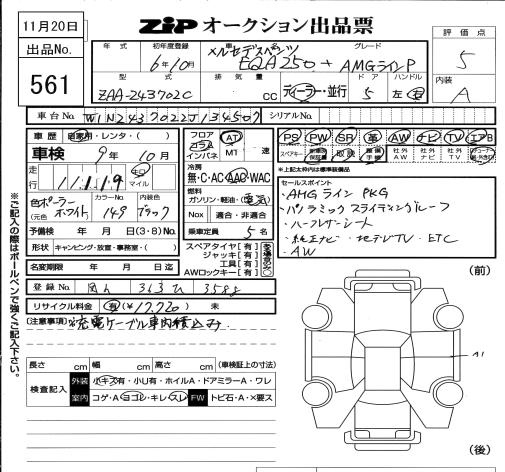 11月20日
ZIP オークション出品票
評価点
5
出品No.
561
年式
初年度登録
6年10月
車名
メルセデスベンツ
EQA250+
グレード
AMGラインP
内装
A
型式
ZAA-243702C
排気量
cc
ディーラー・並行
ドア
5
ハンドル
左・右
車台No.
W1N2437022J134507
シリアルNo.
車歴
自家用・レンタ・( )
車検
9年10月
走行
11,119
キロ
マイル
色
(元色
ポーラーホワイト
カラーNo.
149
内装色
ブラック
予備検 年 月 日(3・8)No.
形状 キャンピング・放室・事務室・( )
名変期限 年 月 日迄
フロア
コラム
インパネ
AT
MT 速
冷房
無・C・AC・AAC・WAC
燃料
ガソリン・軽油・(電気)
Nox 適合・非適合
乗車定員 5 名
スペアタイヤ[有]
ジャッキ[有]
工具[有]
AWロックキー[有]
PS PW SR 革 AW ナビ TV エアB
スペアキー 保証書 取説 手帳 社外AW 社外ナビ 社外TV
*上記太枠内は標準装備品
セールスポイント
・AMG ライン PKG
・パノラミック スライディングルーフ
・ハーフレザーシート
・純正ナビ・地デジTV・ETC
・AW
登録No. 363 ひ
リサイクル料金 有(¥17,720) 未
(注意事項)※充電ケーブル車内積込み
長さ cm 幅 cm 高さ cm (車検証上の寸法)
検査記入
外装 小キズ有・小U有・ホイルA・ドアミラーA・ワレ
室内 コゲ・A ヨゴレ・キレ・スレ FW トビ石・A・×要ス
※ご記入の際はボールペンで強くご記入下さい。
(前)
A1
(後)